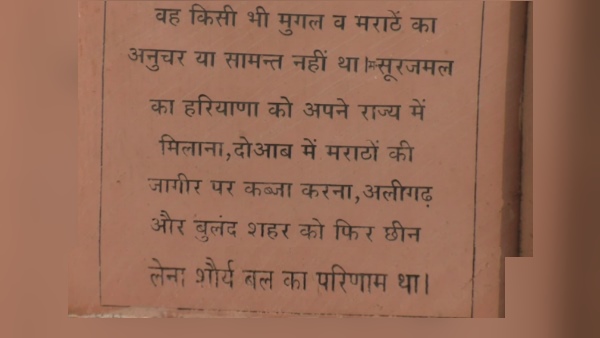 वह किसी भी मुगल व मराठें का
अनुचर या सामन्त नहीं था।सूरजमल
का हरियाणा को अपने राज्य में
मिलाना,दोआब में मराठों की
जागीर पर कब्जा करना,अलीगढ़
और बुलंद शहर को फिर छीन
लेना शौर्य बल का परिणाम था।